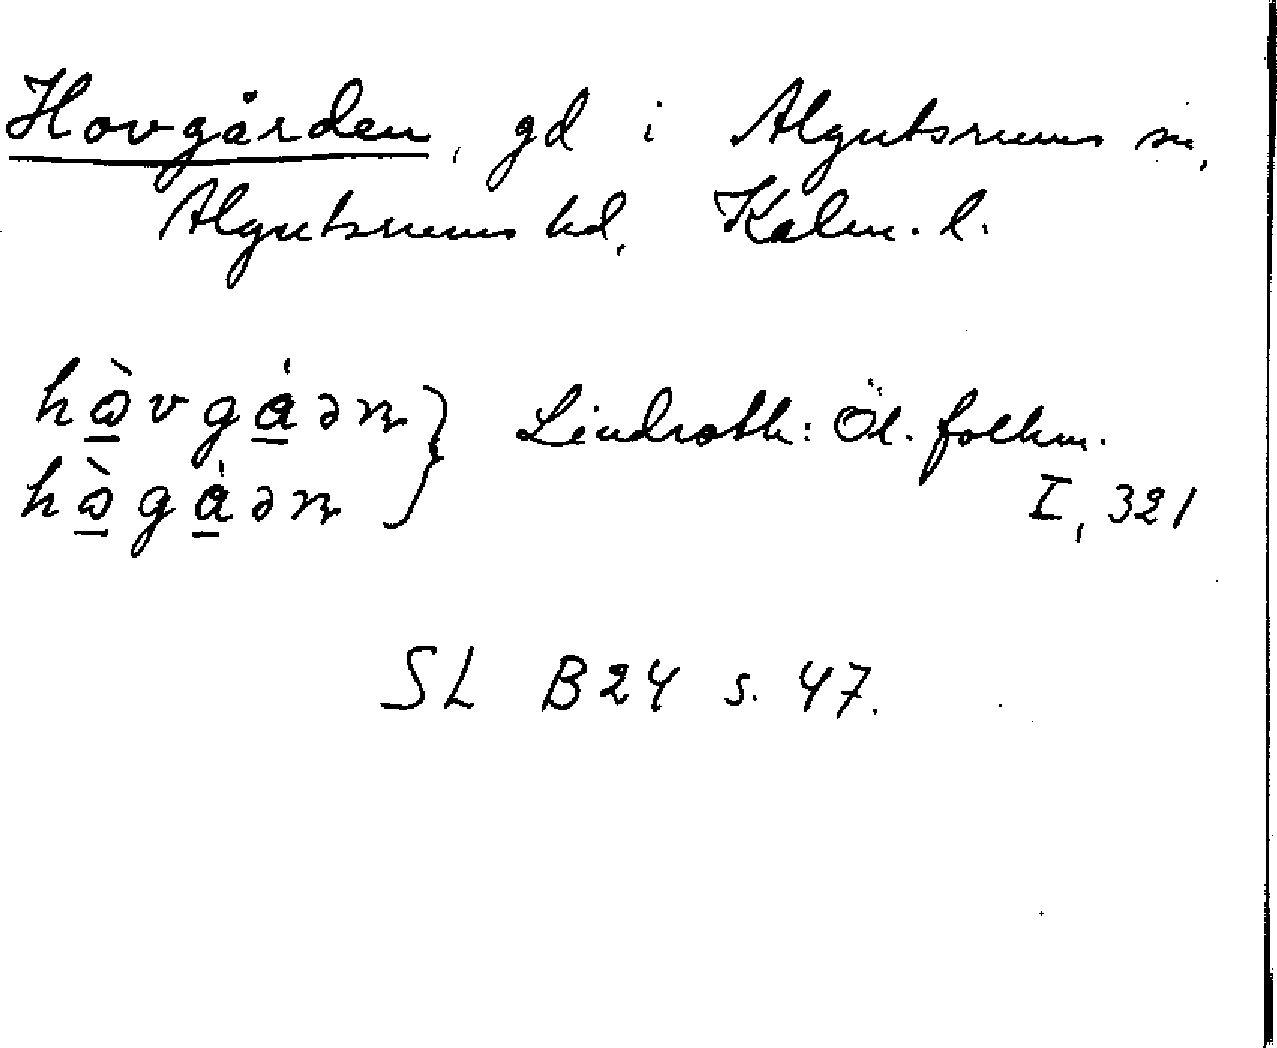 Hovgården, gd i Algutsrums sn,
Algutsrums hd, Kalm. l.
hὼ̲vgα̲̇ən } Lindroth: Öl. folkm.
hὼ̲gα̲̇ən I, 321
SL B24 s. 47.